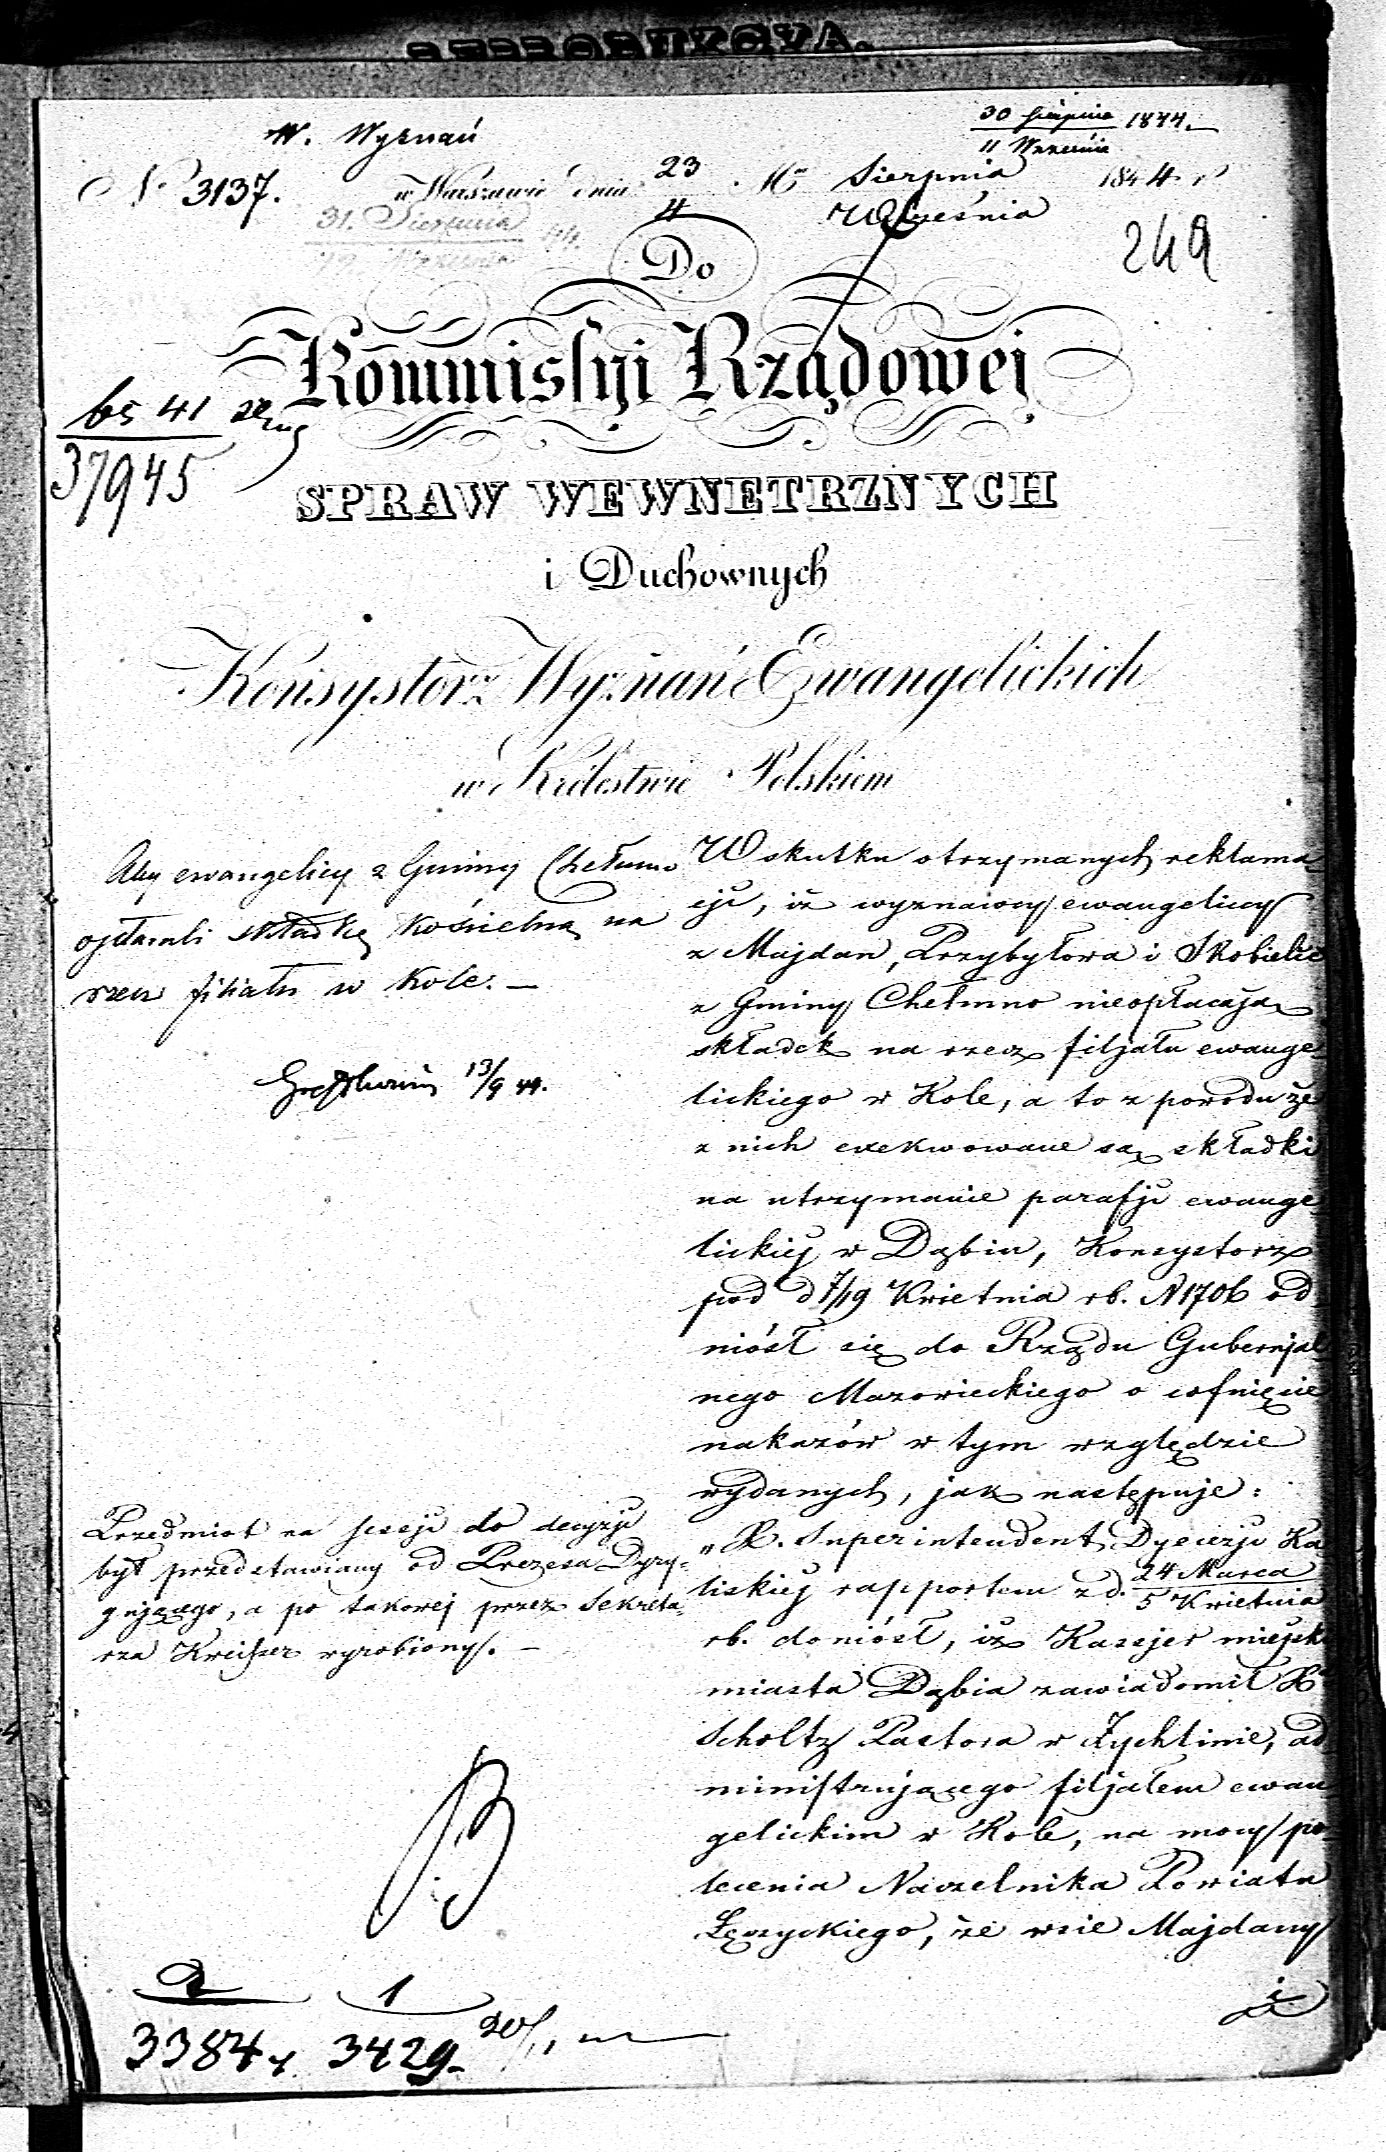 W. Wyznań
30 Sierpnia 1844.
11 Września
No 3137. w Warszawie dnia 23 Mca Sierpnia 1844 r
4 Września
31. Sierpnia 44.
Września
249
Do
Kommissyi Rządowej
bs 41
37945
SPRAW WEWNETRZNYCH
i Duchownych
Konsystorz Wyznań Ewangelickich
w Królestwie Polskiem
Aby ewangelicy z Gminy Chełmno
opłacali składkę kościelną na
rzecz filiału w Kole. –
13/9 44.
Przedmiot na sessji do decyzji
był przedstawiany od Prezesa Dyry-
gującego, a po takowej przez Sekreta-
rza wyrobiony. –
W skutku otrzymanych reklama
cji, iż wyznawcy ewangeliccy
z Majdan, Przybyłowa i Skobielic
z Gminy Chełmno nieopłacają
składek na rzecz filjału ewange
lickiego w Kole, a to z powodu że
z nich exekwowane są składki
na utrzymanie parafji ewange
lickiej w Dąbiu, Konsystorz
pod d 7/19 Kwietnia rb. N 1706 od
niósł się do Rządu Gubernjal
nego Mazowieckiego o cofnięcie
nakazów w tym względzie
wydanych, jak następuje:
„X. Superintendent Dyecezji Ka
liskiej rapportem z d. 24 Marca
5 Kwietnia
rb. doniósł, iż Kassjer miejsk
miasta Dąbia zawiadomił X
Scholtz Pastora w Zychlinie, ad
ministrującego filjałem ewan
gelickim w Kole, na mocy po
lecenia Naczelnika Powiatu
Łęczyckiego, że wsie Majdany
i
2 1
3384 3429.